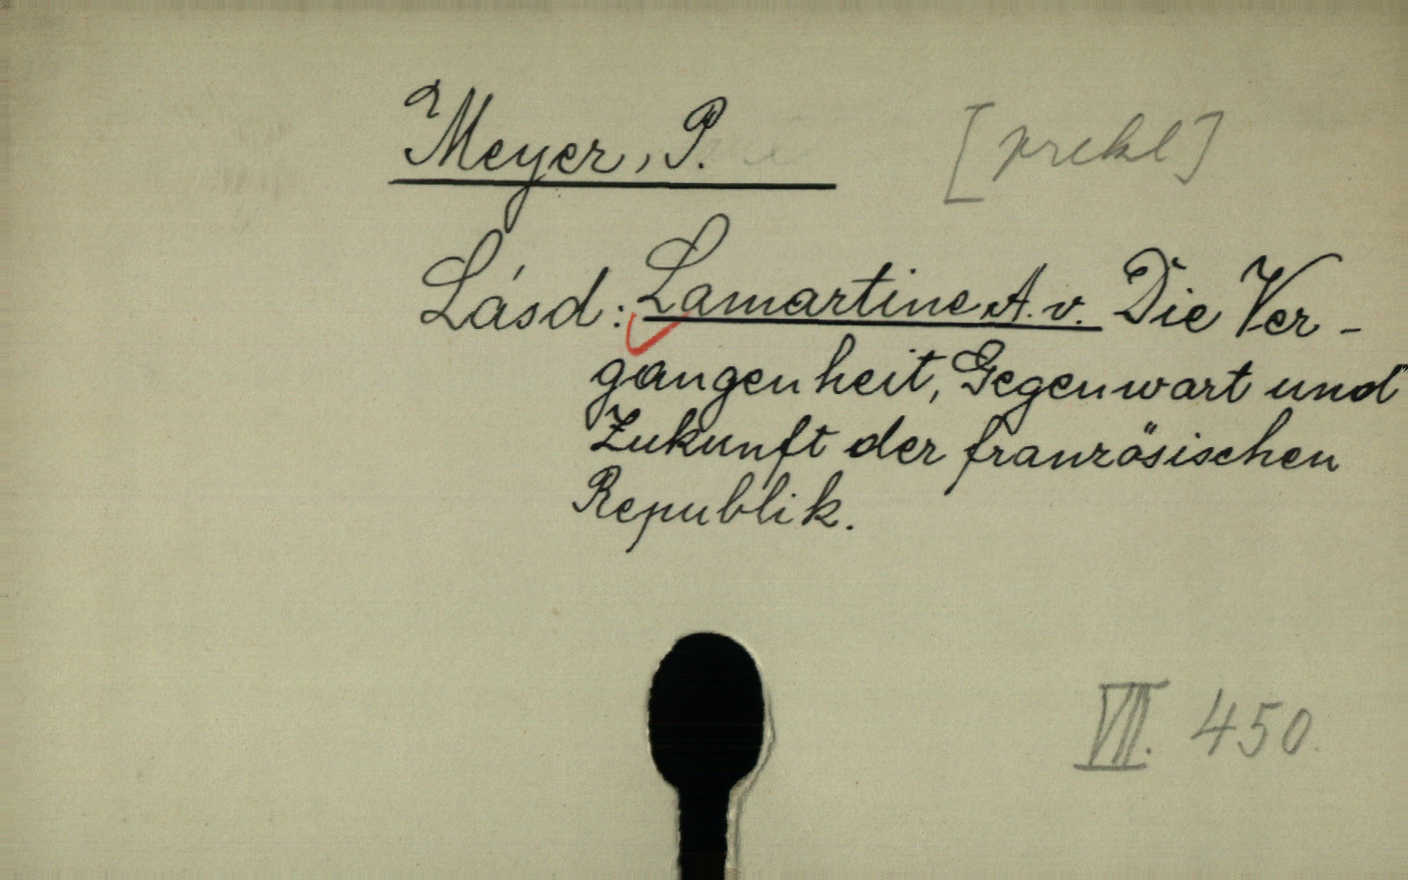 Meyer, P. [prekl]
Lásd: Lamartine A. v. Die Ver-
gangenheit, Gegenwart und
Zukunft der französischen
Republik.
VII. 450.